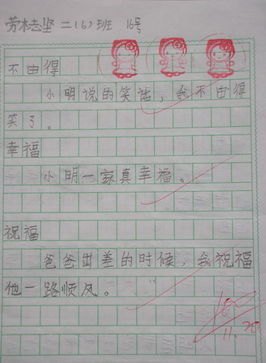 二(6)班 16号
不由得
小明说的笑话，我不由得
笑了。
幸福
小明一家真幸福。
祝福
爸爸出差的时候，我祝福
他一路顺风。